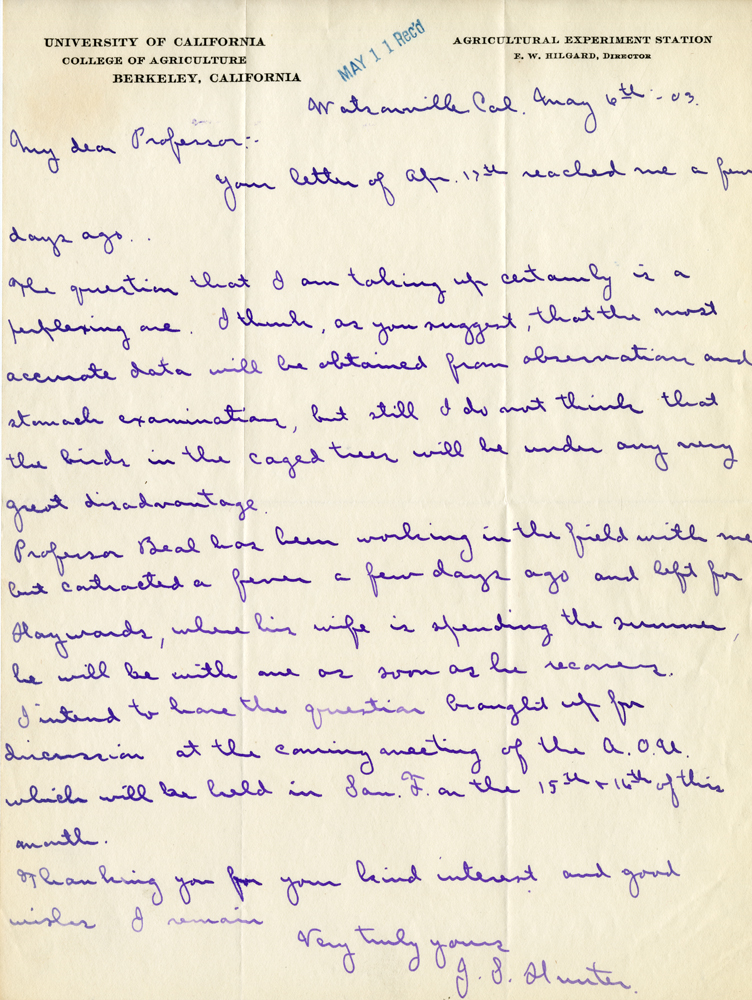 UNIVERSITY OF CALIFORNIA
COLLEGE OF AGRICULTURE
BERKELEY, CALIFORNIA
MAY 11 Rec'd
AGRICULTURAL EXPERIMENT STATION
E. W. HILGARD, DIRECTOR
Watsonville Cal. May 6th - 03.
My dear Professor:-
Your letter of Apr. 17th reached me a few
days ago. .
The question that I am taking up certainly is a
perplexing one. I think, as you suggest, that the most
accurate data will be obtained from observation and
stomach examination, but still I do not think that
the birds in the caged trees will be under any very
great disadvantage.
Professor Beal has been working in the field with me
but contracted a fever a few days ago and left for
Haywards, where his wife is spending the summer,
he will be with me as soon as he recovers.
I intend to have the question brought up for
discussion at the coming meeting of the A.O.U.
which will be held in San. F. on the 15th + 16th of this
month.
Thanking you for your kind interest and good
wishes I remain
Very truly yours
J. S. Hunter.